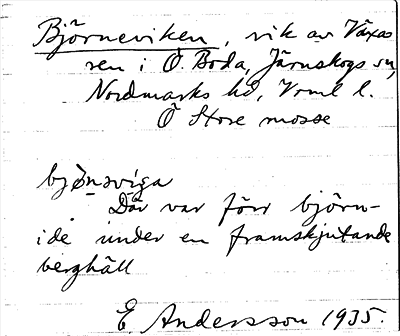 Björneviken, vik av Växas
ren i Ö. Boda, Järnskogs sn,
Nordmarks hd, Vrml l.
Ö Store mosse
bjønsviga
Där var förr björn-
ide under en framskjutande
berghäll
E. Andersson 1935.